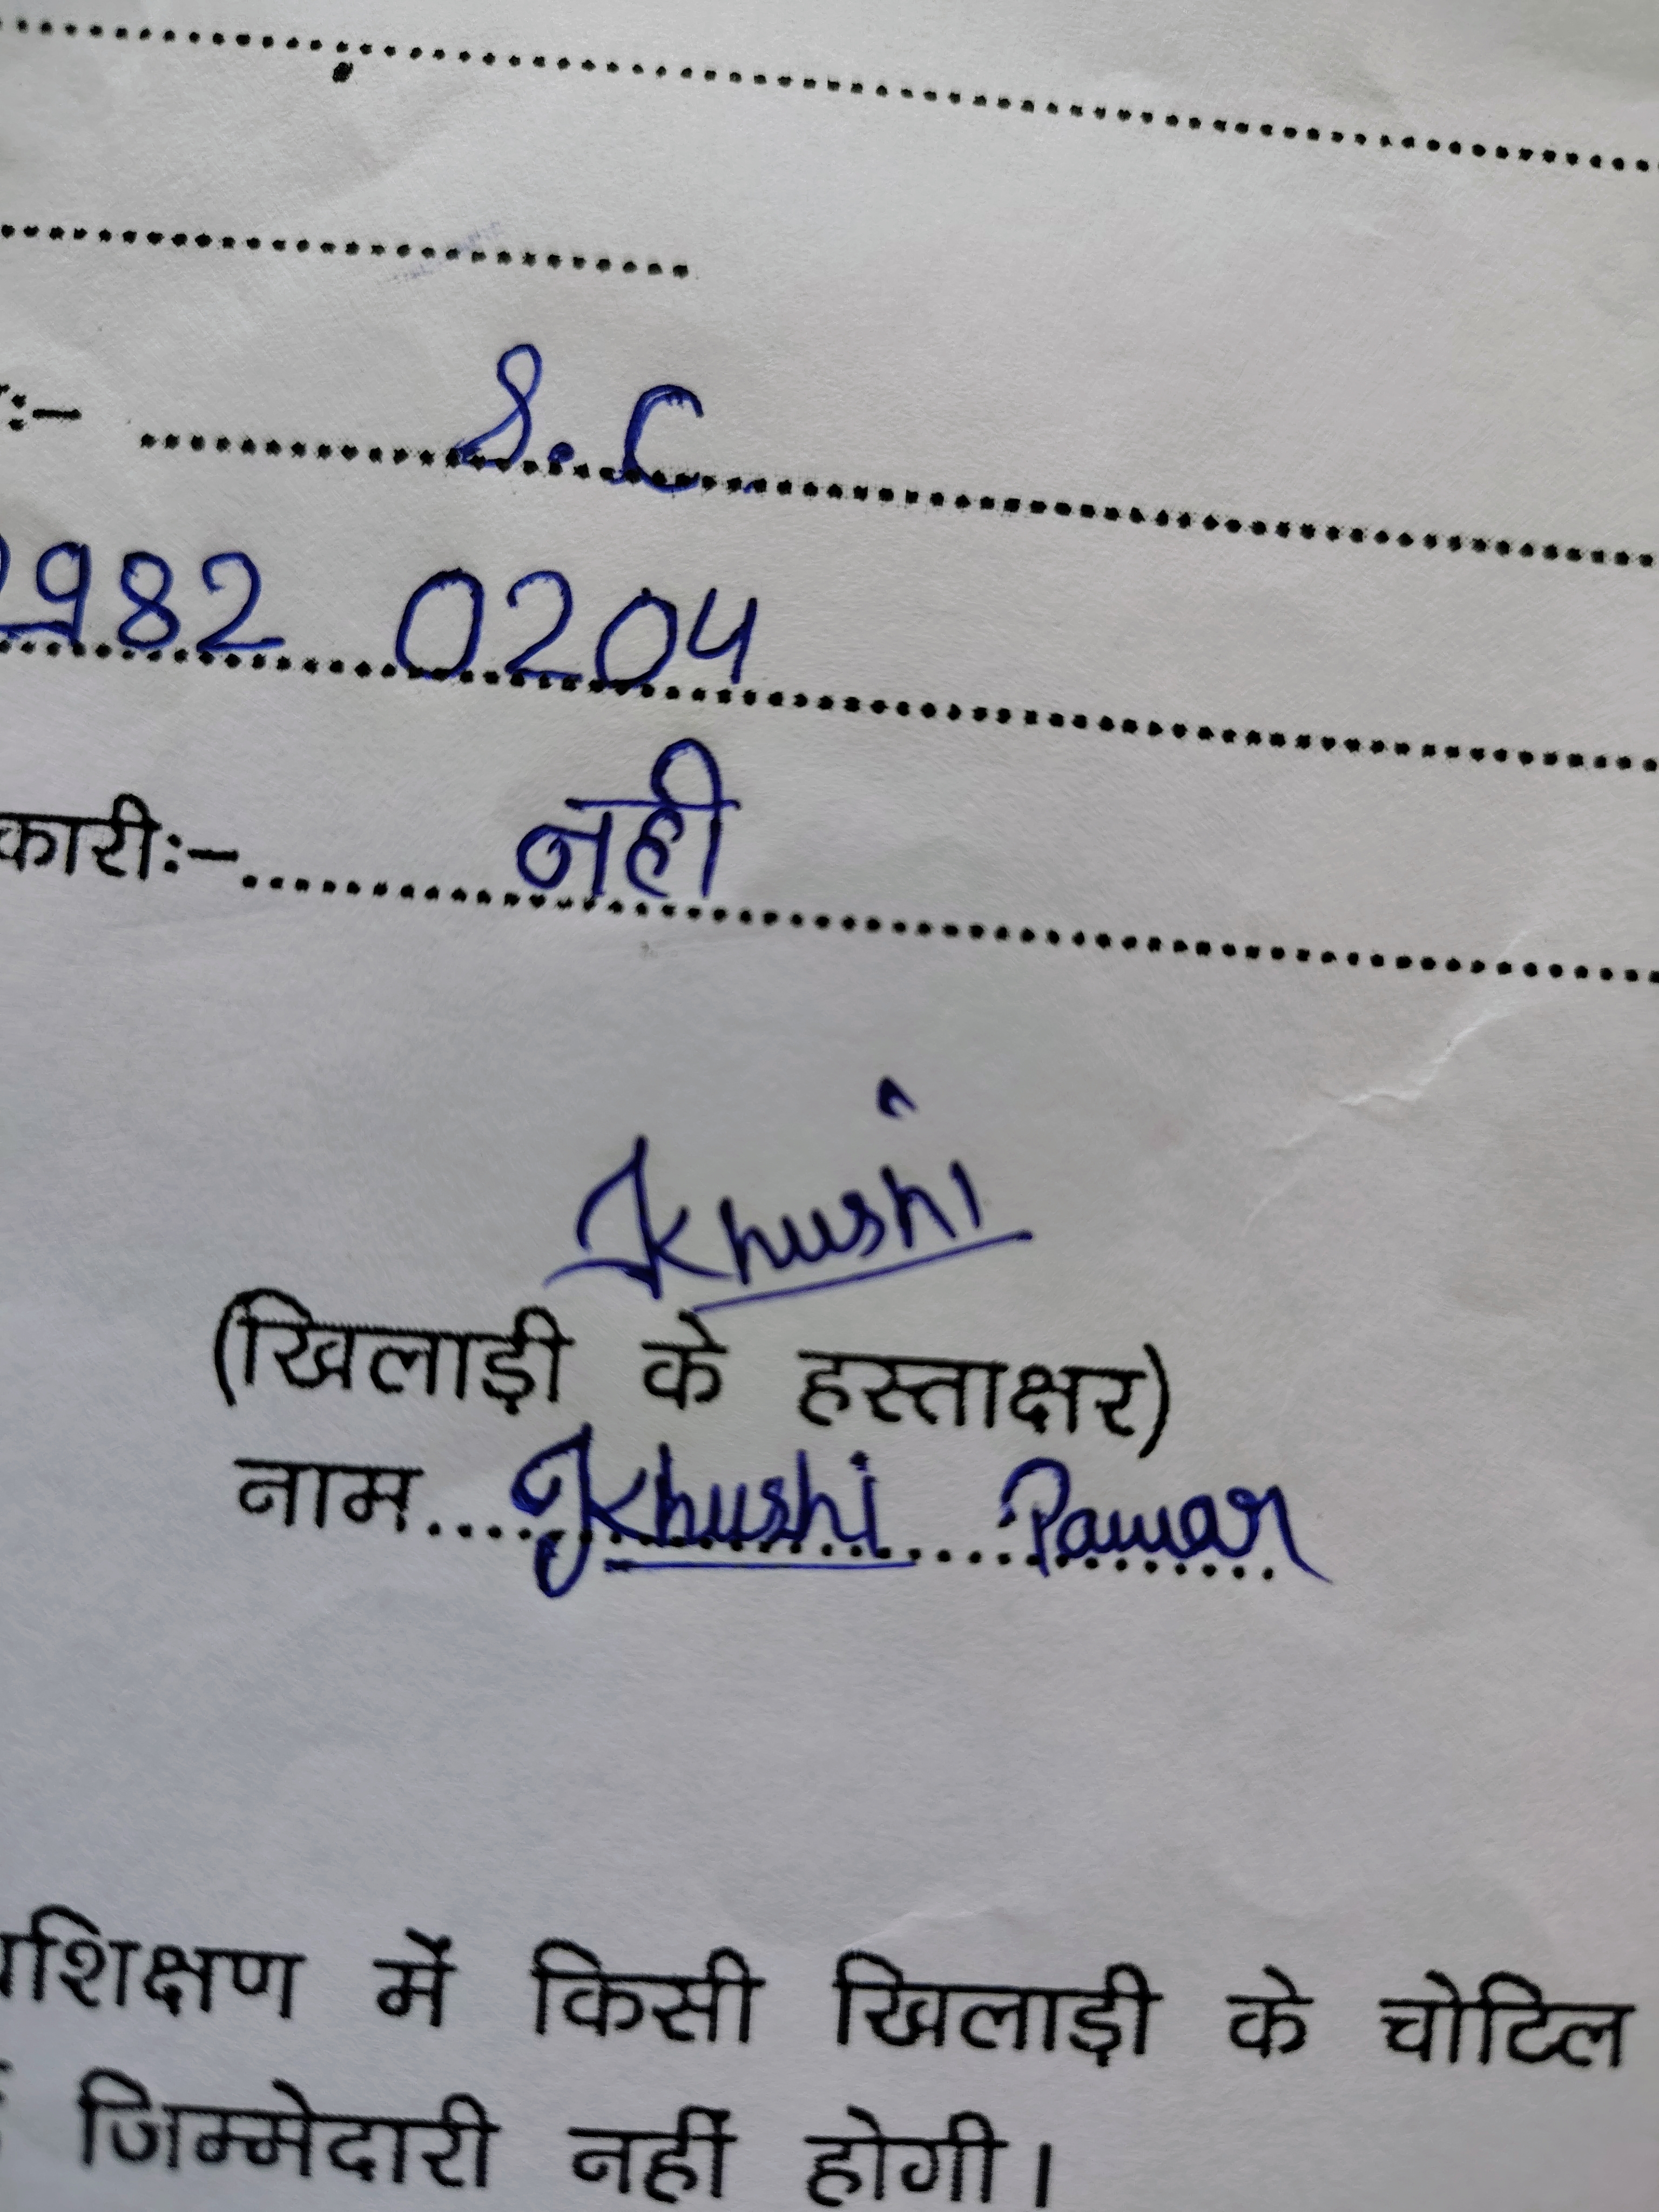 :- S.C.
982 0204
कारी:- नही
Khushi
(खिलाड़ी के हस्ताक्षर)
नाम.... Khushi Pawar
प्रशिक्षण में किसी खिलाड़ी के चोटिल
जिम्मेदारी नहीं होगी।